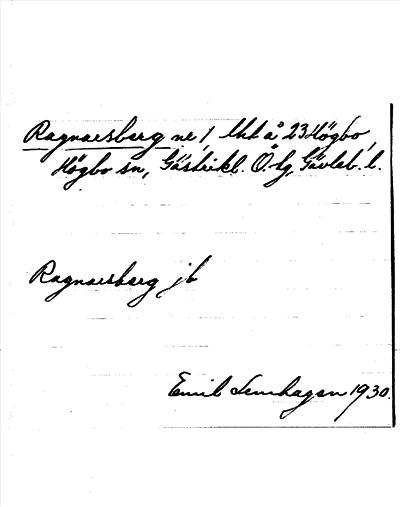 Ragnarsberg nr 1 lht å 23 Högbo,
Högbo sn, Gästrikl. Ö. hg, Gävleb. l.
Ragnarsberg jb
Emil Lenhagen 1930.